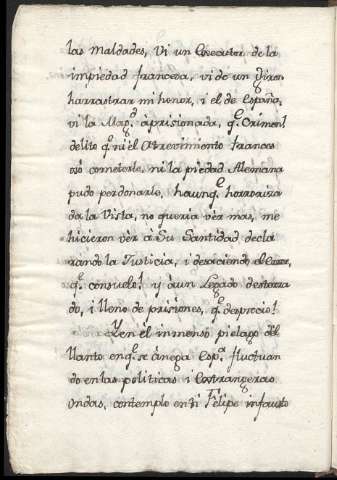 las maldades, vi un Executor de la
impiedad francesa, vi de un giron
harrastrar mi honor, i el de España,
vi la Magd aprisionada, qe Crimen!
delito qe ni el Atrevimiento frances
osó cometerle, ni la piedad Alemana
pudo perdonarle, haunqe horroriza
da la Vista, no queria vèr mas, me
hicieron vèr à Su Santidad decla
rando la Justicia, i desaciendo el
qe consuelo! y àun Legado desterra
do, i lleno de prisiones, qe desprecio!
Y en èl inmenso pielago del
llanto en qe se ànega Espa fluctuan
do en las politicas i Eestrangeras
ondas, contemplo en ti Felipe infausto